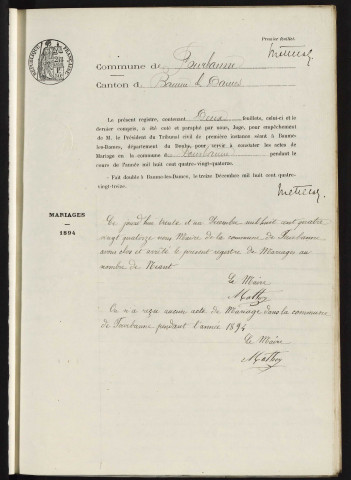 Premier feuillet.
Commune de Fourbanne
Canton d Baume les Dames
RÉPUBLIQUE FRANÇAISE
Le présent registre, contenant Deux feuillets, celui-ci et le
dernier compris, a été coté et paraphé par nous, Juge, pour empêchement
de M. le Président du Tribunal civil de première instance séant à Baume-
les-Dames, département du Doubs, pour servir à constater les actes de
Mariage en la commune de Fourbanne pendant le
cours de l'année mil huit cent quatre-vingt-quatorze.
Fait double à Baume-les-Dames, le treize Décembre mil huit cent quatre-
vingt-treize.
MARIAGES
1894
Ce jourd'hui trente et un Décembre mil huit cent quatre
vingt quatorze nous Maire de la commune de Fourbanne
avons clos et arrêté le présent registre de Mariage au
nombre de Néant
Le Maire
Mathey
On n'a reçu aucun acte de Mariage dans la commune
de Fourbanne pendant l'année 1894
Le Maire
Mathey